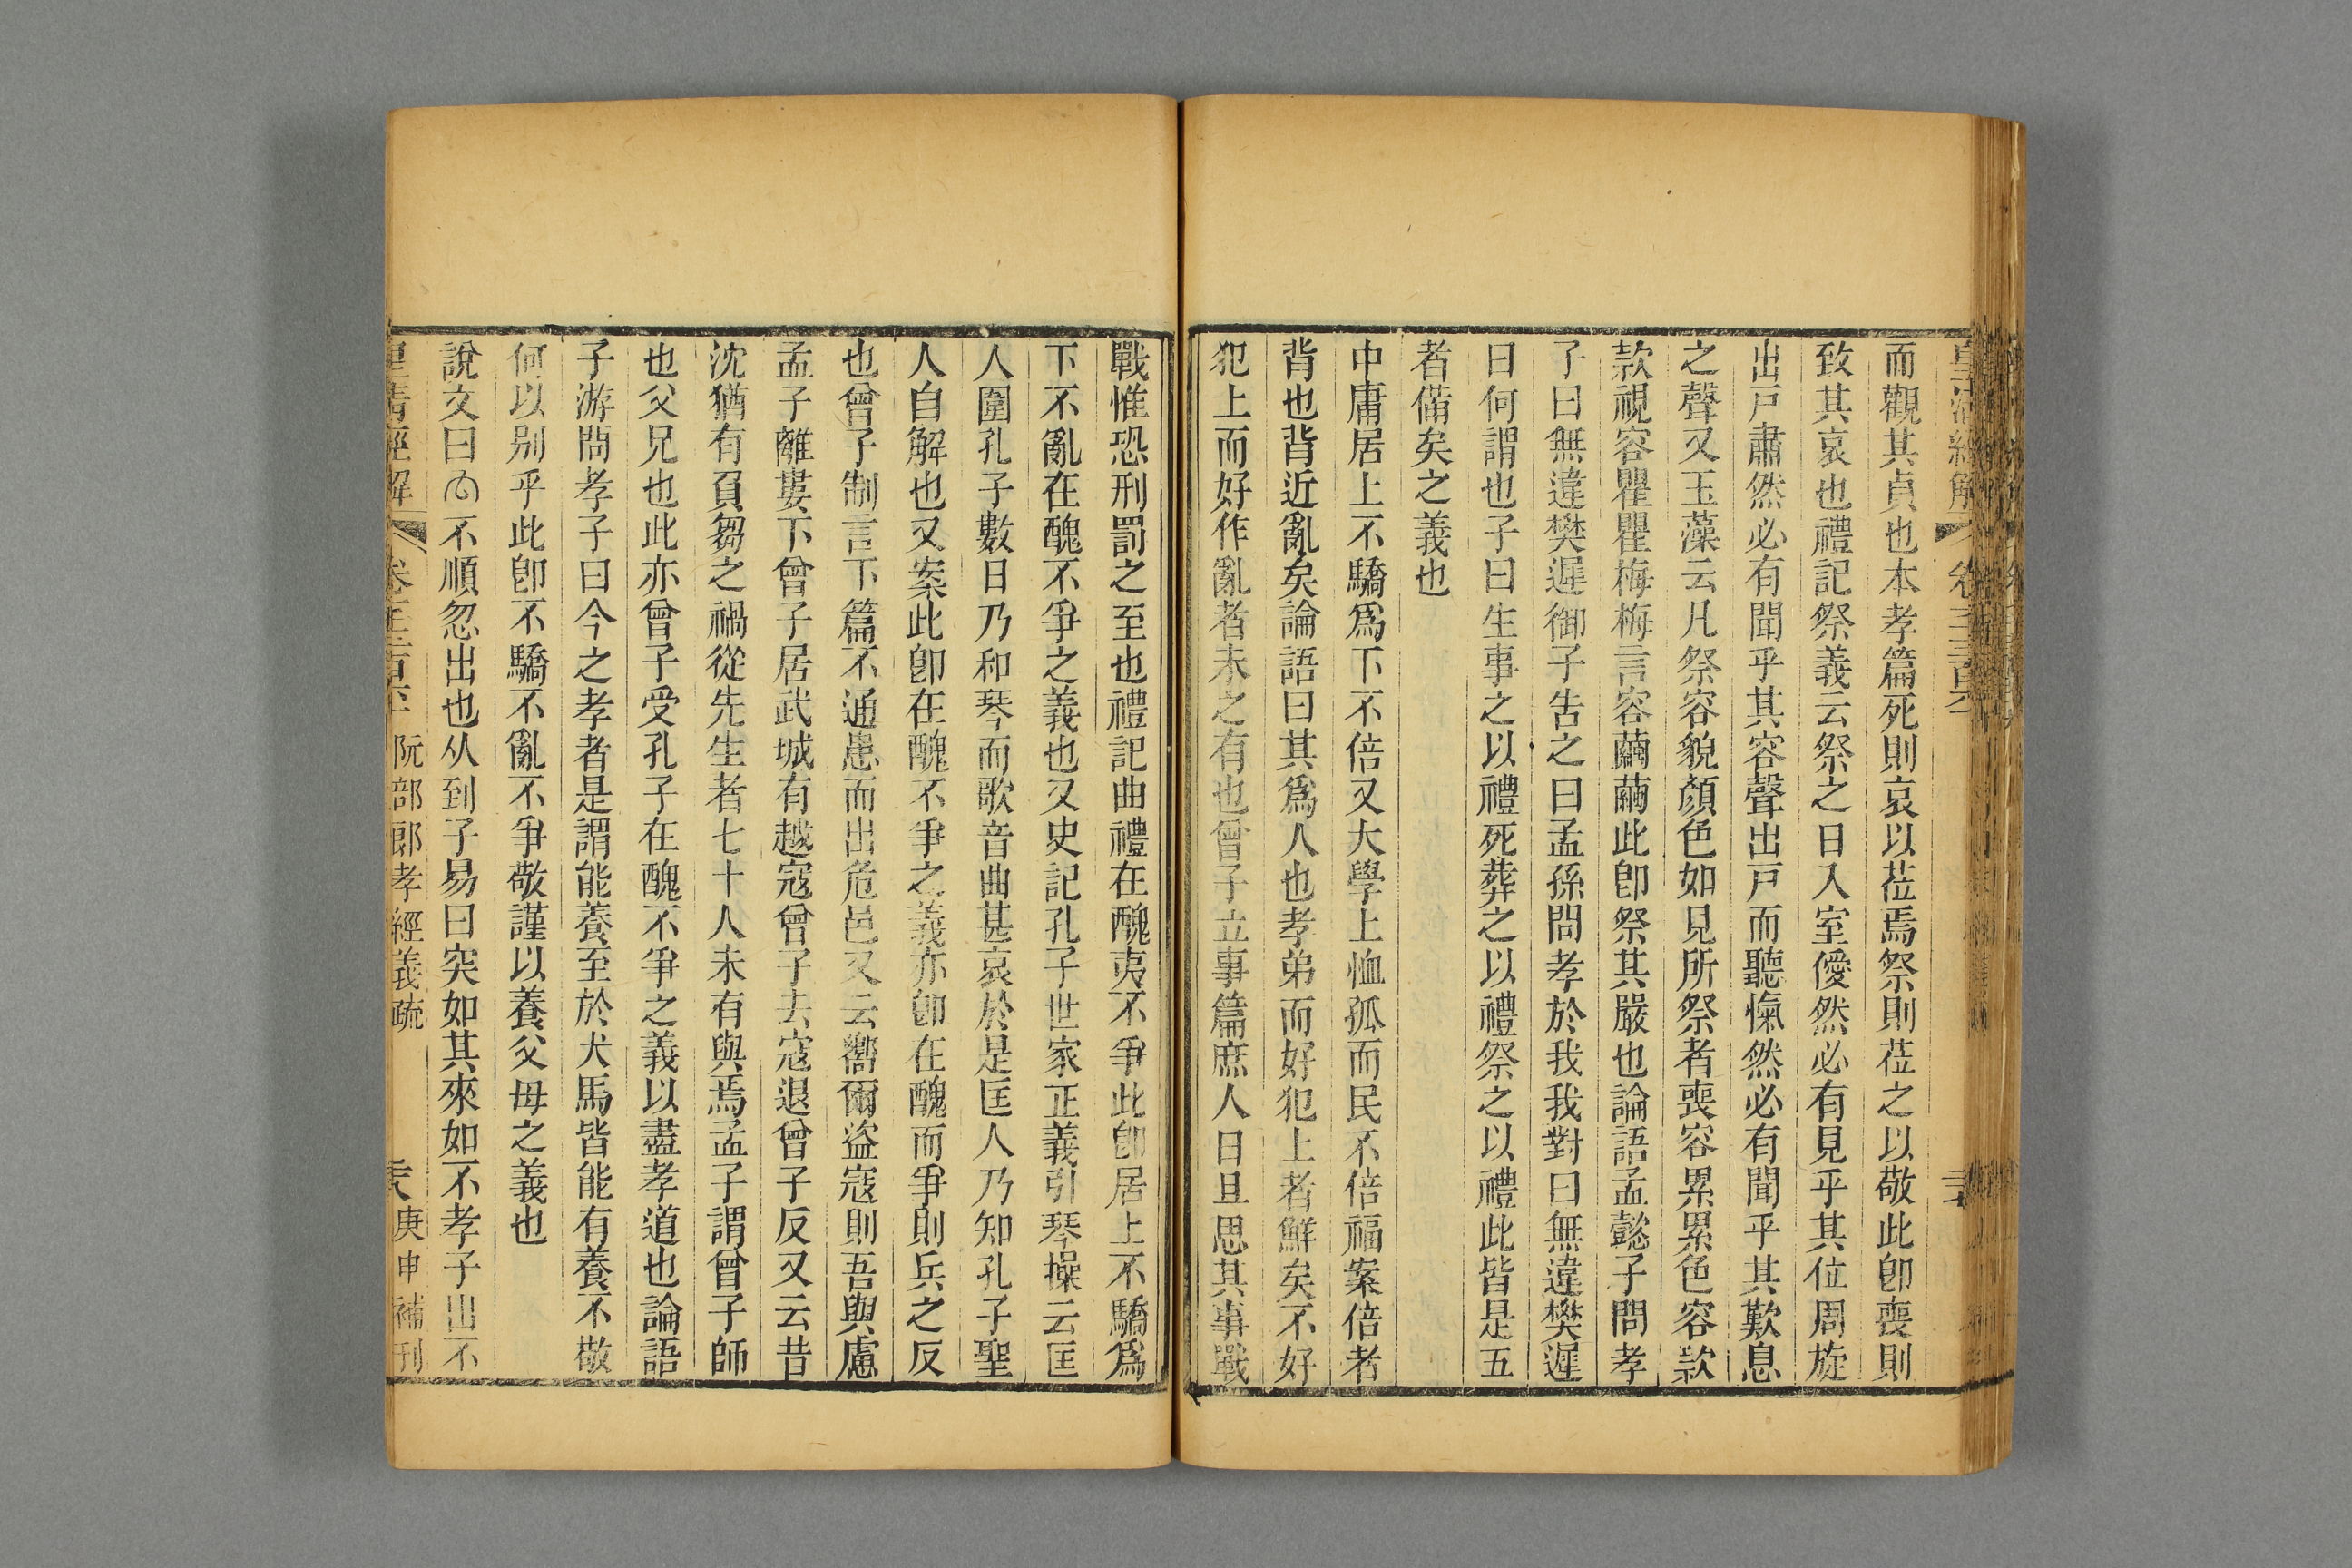 而觀其貞也本孝篇死則哀以莅焉祭則莅之以敬此卽喪則
致其哀也禮記祭義云祭之日入室僾然必有見乎其位周旋
出戸肅然必有聞乎其容聲出戸而聽愾然必有聞乎其歎息
之聲又玉藻云凡祭容貌顏色如見所祭者喪容累累色容
款視容瞿瞿梅梅言容繭繭此卽祭其嚴也論語孟懿子問孝
子曰無違樊遲御子告之曰孟孫問孝於我我對曰無違樊遲
曰何謂也子曰生事之以禮死葬之以禮祭之以禮此皆是五
者備矣之義也
中庸居上不驕爲下不倍又大學上恤孤而民不倍福案倍者
背也背近亂矣論語曰其爲人也孝弟而好犯上者鮮矣不好
犯上而好作亂者未之有也曾子立事篇庶人日旦思其事戰
戰惟恐刑罰之至也禮記曲禮在醜夷不爭此卽居上不驕爲
下不亂在醜不爭之義也又史記孔子世家正義引琴操云匡
人圍孔子數日乃和琴而歌音曲甚哀於是匡人乃知孔子聖
人自解也又案此卽在醜不爭之義亦卽在醜而爭則兵之反
也曾子制言下篇不通患而出危邑又云嚮爾盜寇則吾與慮
孟子離婁下曾子居武城有越寇曾子去寇退曾子反又云昔
沈猶有負芻之禍從先生者七十人未有與焉孟子謂曾子師
也父兄也此亦曾子受孔子在醜不爭之義以盡孝道也論語
子游問孝子曰今之孝者是謂能養至於犬馬皆能有養不敬
何以别乎此卽不驕不亂不爭敬謹以養父母之義也
說文曰𠫓不順忽出也从到子易曰突如其來如不孝子出不
皇清經解 卷 阮部郎孝經義疏 庚申補刊